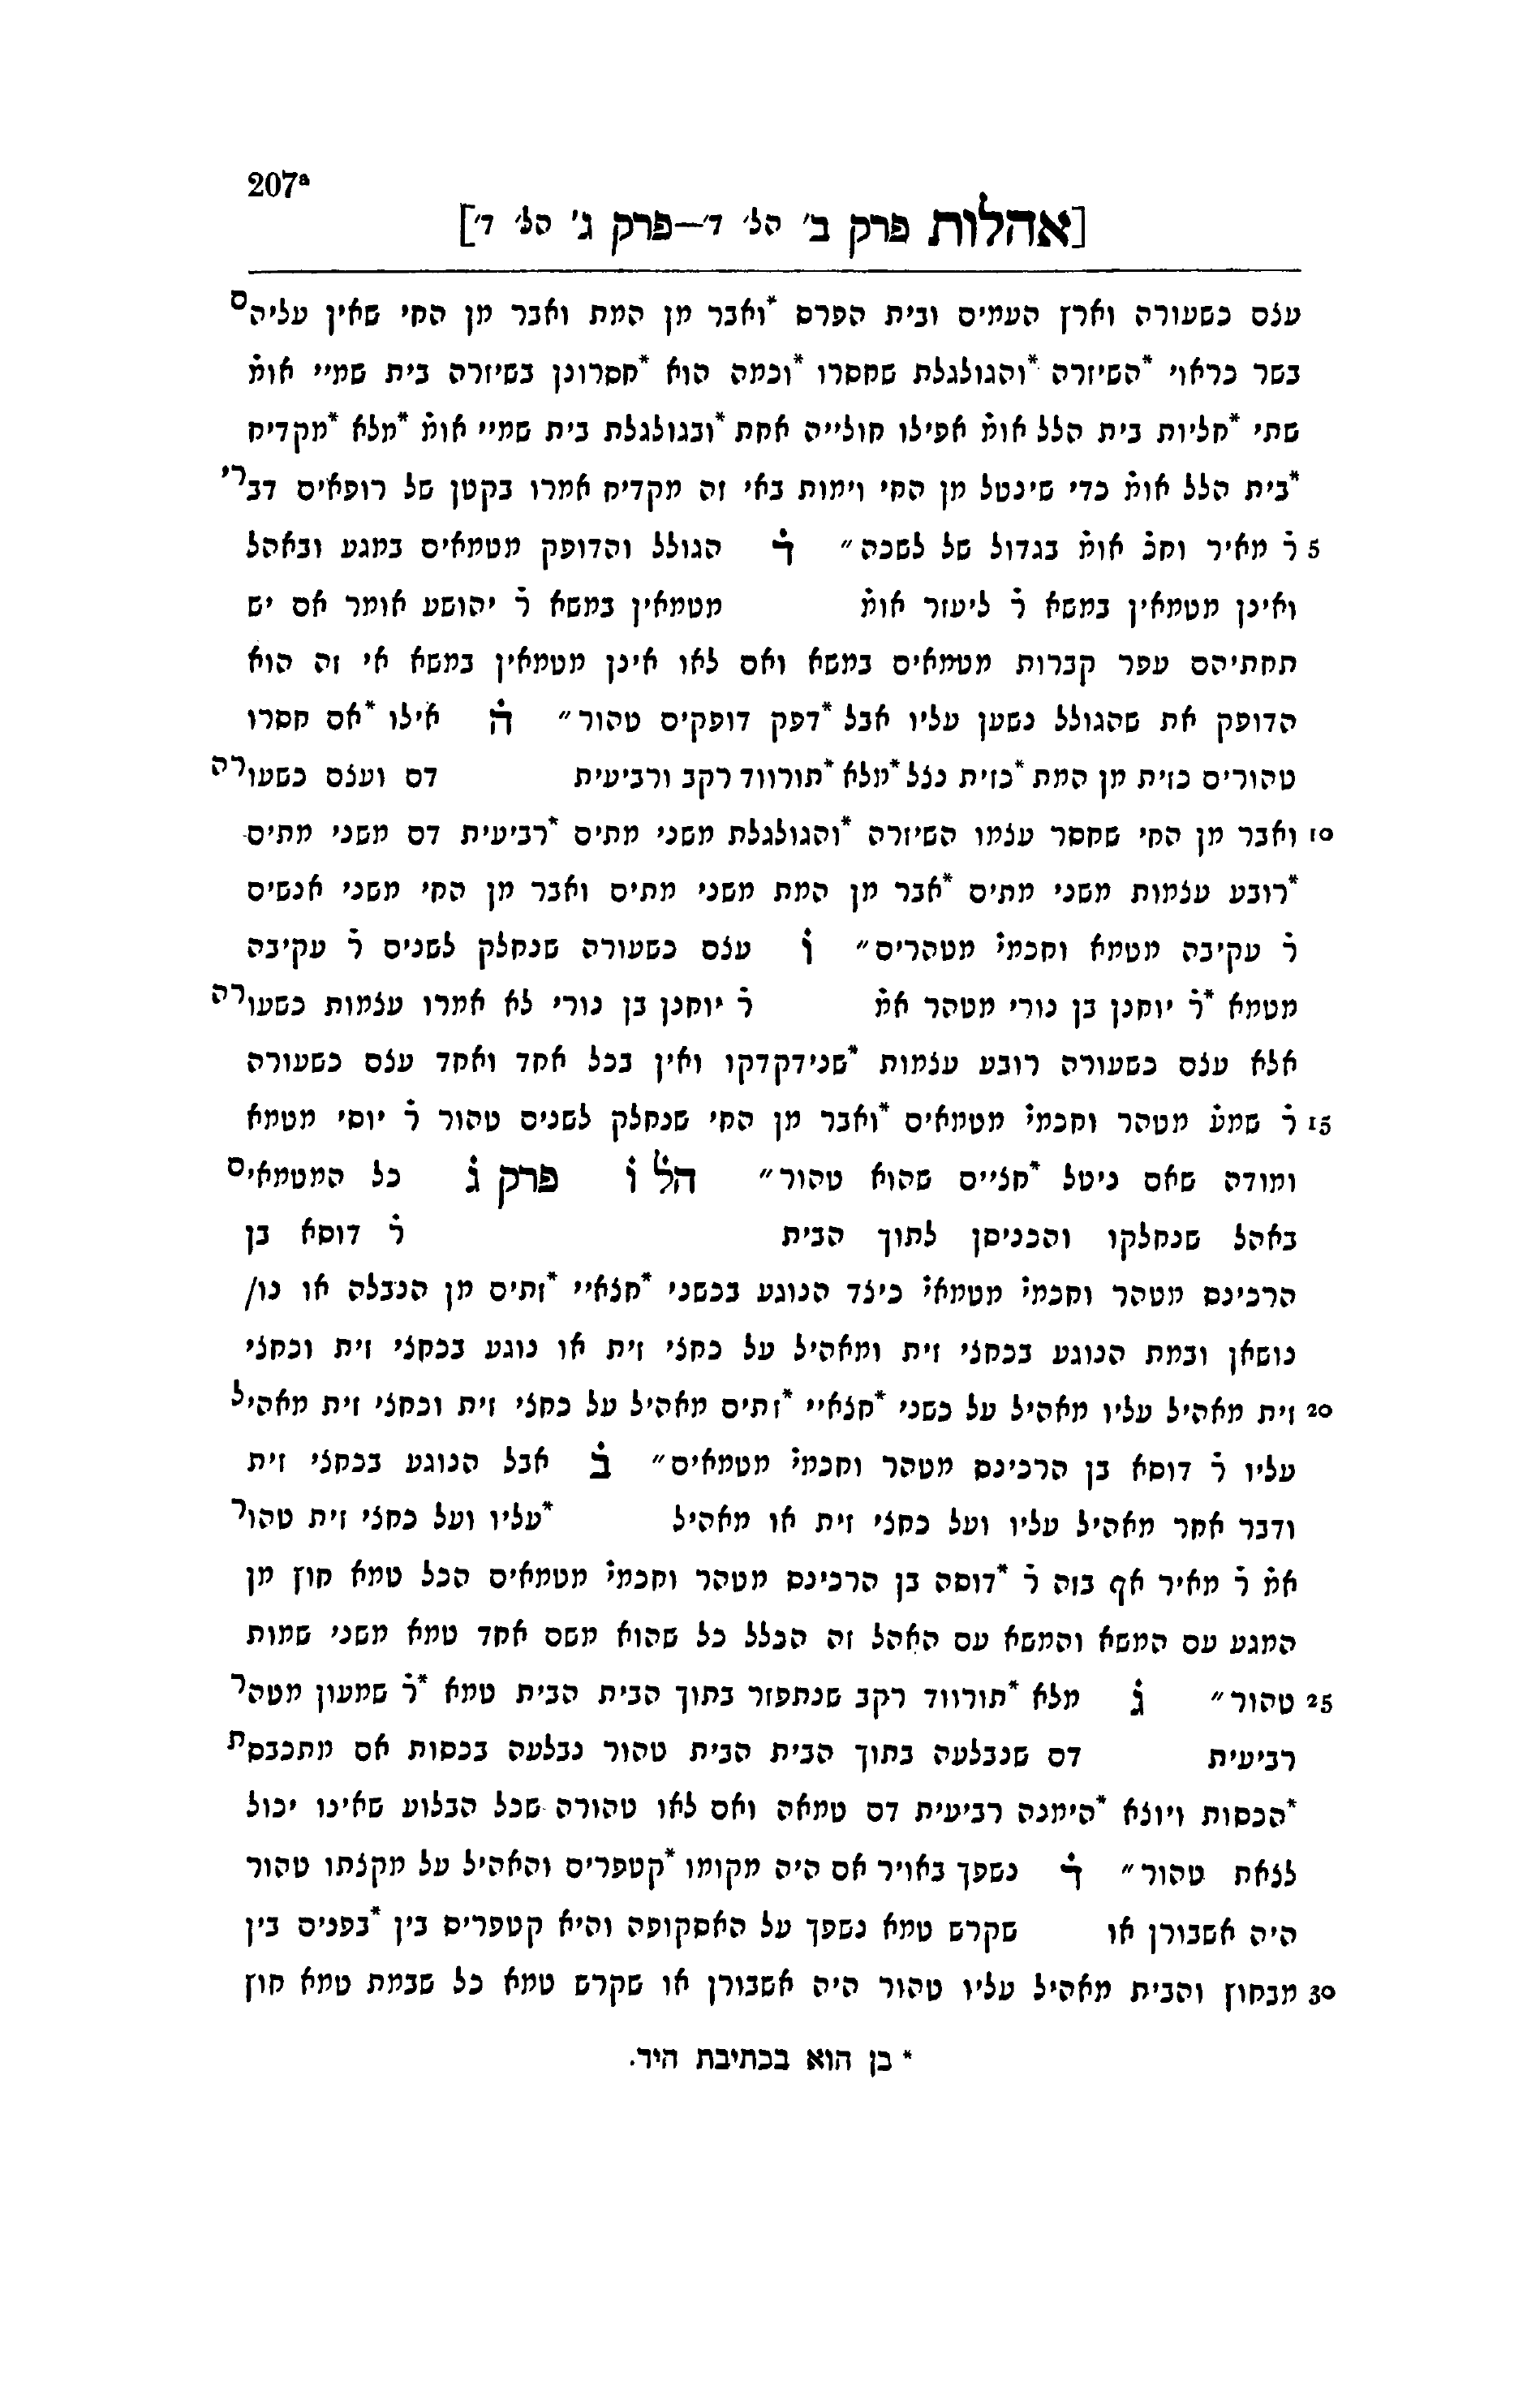 207ª
[אהלות פרק ב׳ הל׳ ד׳—פרק ג׳ הל׳ ד׳]
עצם כשעורה וארץ העמים ובית הפרס *ואבר מן המת ואבר מן החי שאין עליהם
בשר כראוי *השיזרה *והגולגלת שחסרו *וכמה הוא *חסרונן בשיזרה בית שמיי אומ̇
שתי *חליות בית הלל אומ̇ אפילו חולייה אחת *ובגולגלת בית שמיי אומ̇ *מלא *מקדיח
*בית הלל אומ̇ כדי שינטל מן החי וימות באי זה מקדיח אמרו בקטן של רופאים דברי
5 ר̇ מאיר וחכ̇ אומ̇ בגדול של לשכה״ ד̇ הגולל והדופק מטמאים במגע ובאהל
ואינן מטמאין במשא ר̇ ליעזר אומ̇ מטמאין במשא ר̇ יהושע אומר אם יש
תחתיהם עפר קברות מטמאים במשא ואם לאו אינן מטמאין במשא אי זה הוא
הדופק את שהגולל נשען עליו אבל *דפק דופקים טהור״ ה̇ אילו *אם חסרו
טהורים כזית מן המת *כזית נצל *מלא *תורווד רקב ורביעית דם ועצם כשעורה
10 ואבר מן החי שחסר עצמו השיזרה *והגולגלת משני מתים *רביעית דם משני מתים
*רובע עצמות משני מתים *אבר מן המת משני מתים ואבר מן החי משני אנשים
ר̇ עקיבה מטמא וחכמי̇ מטהרים״ ו̇ עצם כשעורה שנחלק לשנים ר̇ עקיבה
מטמא *ר̇ יוחנן בן נורי מטהר אמ̇ ר̇ יוחנן בן נורי לא אמרו עצמות כשעורה
אלא עצם כשעורה רובע עצמות *שנידקדקו ואין בכל אחד ואחד עצם כשעורה
15 ר̇ שמע̇ מטהר וחכמי̇ מטמאים *ואבר מן החי שנחלק לשנים טהור ר̇ יוסי מטמא
ומודה שאם ניטל *חציים שהוא טהור״ הל̇ ו̇ פרק ג̇ כל המטמאים
באהל שנחלקו והכניסן לתוך הבית ר̇ דוסא בן
הרכינס מטהר וחכמי̇ מטמאי̇ כיצד הנוגע בכשני *חצאיי *זתים מן הנבלה או נו/
נושאן ובמת הנוגע בכחצי זית ומאהיל על כחצי זית או נוגע בכחצי זית וכחצי
20 זית מאהיל עליו מאהיל על כשני *חצאיי *זתים מאהיל על כחצי זית וכחצי זית מאהיל
עליו ר̇ דוסא בן הרכינס מטהר וחכמי̇ מטמאים״ ב̇ אבל הנוגע בכחצי זית
ודבר אחר מאהיל עליו ועל כחצי זית או מאהיל *עליו ועל כחצי זית טהור
אמ̇ ר̇ מאיר אף בזה ר̇ *דוסה בן הרכינס מטהר וחכמי̇ מטמאים הכל טמא חוץ מן
המגע עם המשא והמשא עם האהל זה הכלל כל שהוא משם אחד טמא משני שמות
25 טהור״ ג̇ מלא *תורווד רקב שנתפזר בתוך הבית הבית טמא *ר̇ שמעון מטהר
רביעית דם שנבלעה בתוך הבית הבית טהור נבלעה בכסות אם מתכבסת
*הכסות ויוצא *הימנה רביעית דם טמאה ואם לאו טהורה שכל הבלוע שאינו יכול
לצאת טהור״ ד̇ נשפך באויר אם היה מקומו *קטפרים והאהיל על מקצתו טהור
היה אשבורן או שקרש טמא נשפך על האסקופה והיא קטפרים בין *בפנים בין
30 מבחוץ והבית מאהיל עליו טהור היה אשבורן או שקרש טמא כל שבמת טמא חוץ
* כן הוא בכתיבת היד.